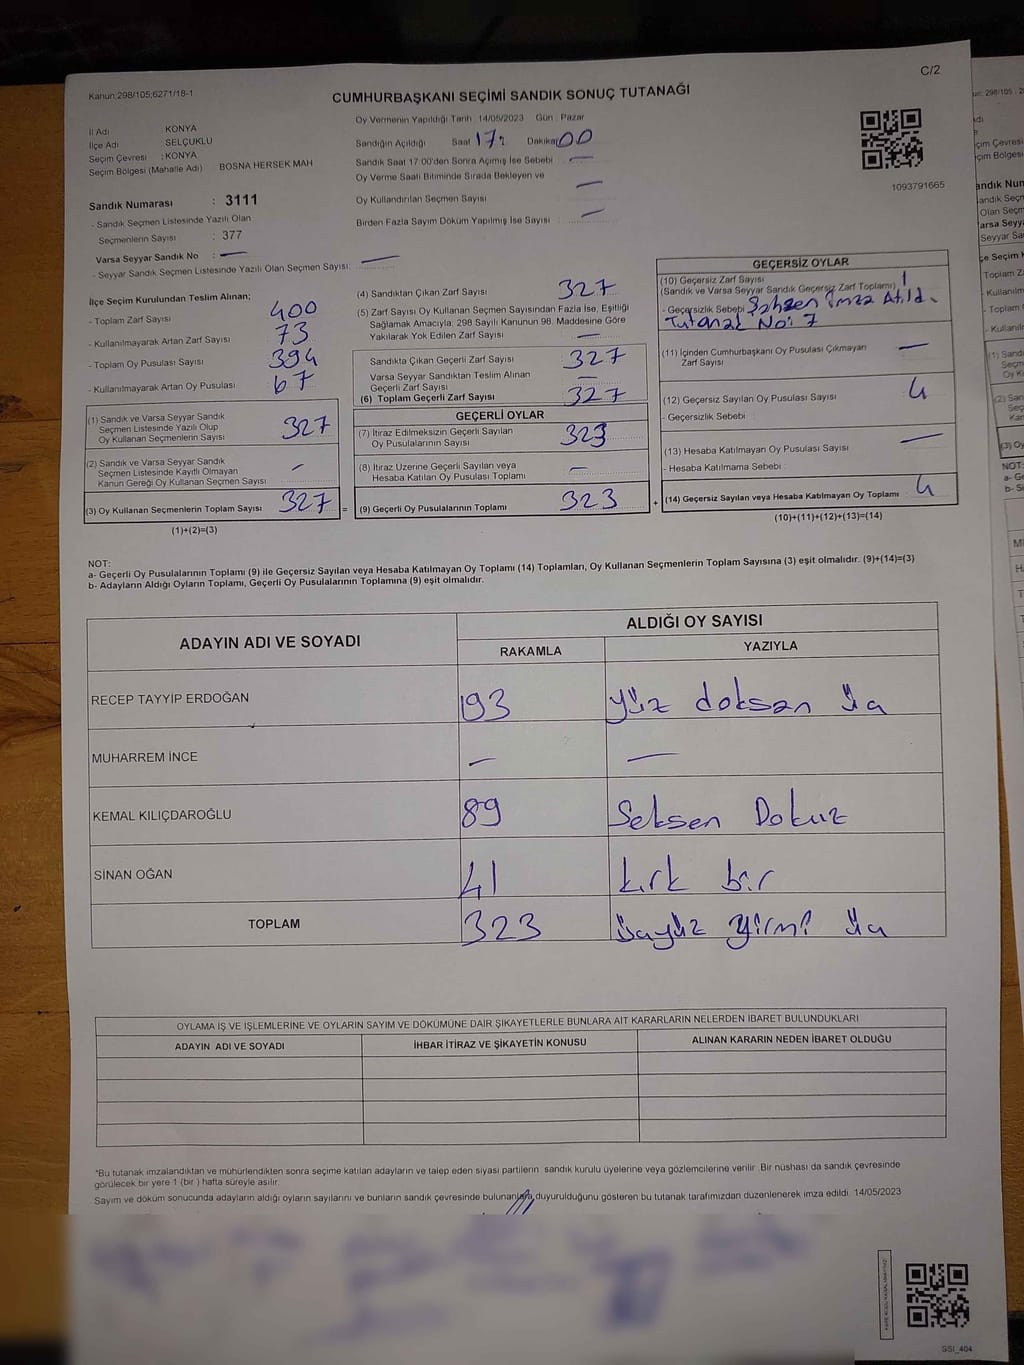 C/2
Kanun:298/105;6271/18-1
CUMHURBAŞKANI SEÇİMİ SANDIK SONUÇ TUTANAĞI
İl Adı KONYA
İlçe Adı SELÇUKLU
Seçim Çevresi : KONYA
Seçim Bölgesi (Mahalle Adı) BOSNA HERSEK MAH
Oy Vermenin Yapıldığı Tarih 14/05/2023 Gün : Pazar
Sandığın Açıldığı Saat 17: Dakika 00
Sandık Saat 17:00'den Sonra Açımış İse Sebebi —
Oy Verme Saati Bitiminde Sırada Bekleyen ve
Oy Kullandırılan Seçmen Sayısı —
Birden Fazla Sayım Döküm Yapılmış İse Sayısı —
1093791665
Sandık Numarası : 3111
- Sandık Seçmen Listesinde Yazılı Olan
Seçmenlerin Sayısı : 377
Varsa Seyyar Sandık No : —
- Seyyar Sandık Seçmen Listesinde Yazılı Olan Seçmen Sayısı: —
İlçe Seçim Kurulundan Teslim Alınan;
- Toplam Zarf Sayısı 400
- Kullanılmayarak Artan Zarf Sayısı 73
- Toplam Oy Pusulası Sayısı 394
- Kullanılmayarak Artan Oy Pusulası 67
(1) Sandık ve Varsa Seyyar Sandık
Seçmen Listesinde Yazılı Olup
Oy Kullanan Seçmenlerin Sayısı 327
(2) Sandık ve Varsa Seyyar Sandık
Seçmen Listesinde Kayıtlı Olmayan
Kanun Gereği Oy Kullanan Seçmen Sayısı —
(3) Oy Kullanan Seçmenlerin Toplam Sayısı 327 =
(1)+(2)=(3)
(4) Sandıktan Çıkan Zarf Sayısı 327
(5) Zarf Sayısı Oy Kullanan Seçmen Sayısından Fazla İse, Eşitliği
Sağlamak Amacıyla, 298 Sayılı Kanunun 98. Maddesine Göre
Yakılarak Yok Edilen Zarf Sayısı —
Sandıkta Çıkan Geçerli Zarf Sayısı 327
Varsa Seyyar Sandıktan Teslim Alınan
Geçerli Zarf Sayısı —
(6) Toplam Geçerli Zarf Sayısı 327
GEÇERLİ OYLAR
(7) İtiraz Edilmeksizin Geçerli Sayılan
Oy Pusulalarının Sayısı 323
(8) İtiraz Üzerine Geçerli Sayılan veya
Hesaba Katılan Oy Pusulası Toplamı —
(9) Geçerli Oy Pusulalarının Toplamı 323 +
GEÇERSİZ OYLAR
(10) Geçersiz Zarf Sayısı
(Sandık ve Varsa Seyyar Sandık Geçersiz Zarf Toplamı) 1
- Geçersizlik Sebebi Şahsen imza Atıldı.
Tutanak No: 7
(11) İçinden Cumhurbaşkanı Oy Pusulası Çıkmayan
Zarf Sayısı —
(12) Geçersiz Sayılan Oy Pusulası Sayısı 4
- Geçersizlik Sebebi
(13) Hesaba Katılmayan Oy Pusulası Sayısı —
- Hesaba Katılmama Sebebi
(14) Geçersiz Sayılan veya Hesaba Katılmayan Oy Toplamı 4
(10)+(11)+(12)+(13)=(14)
NOT:
a- Geçerli Oy Pusulalarının Toplamı (9) ile Geçersiz Sayılan veya Hesaba Katılmayan Oy Toplamı (14) Toplamları, Oy Kullanan Seçmenlerin Toplam Sayısına (3) eşit olmalıdır. (9)+(14)=(3)
b- Adayların Aldığı Oyların Toplamı, Geçerli Oy Pusulalarının Toplamına (9) eşit olmalıdır.
ADAYIN ADI VE SOYADI
ALDIĞI OY SAYISI
RAKAMLA YAZIYLA
RECEP TAYYİP ERDOĞAN 193 yüz doksan üç
MUHARREM İNCE — —
KEMAL KILIÇDAROĞLU 89 Seksen Dokuz
SİNAN OĞAN 41 kırk bir
TOPLAM 323 üçyüz yirmi üç
OYLAMA İŞ VE İŞLEMLERİNE VE OYLARIN SAYIM VE DÖKÜMÜNE DAİR ŞİKAYETLERLE BUNLARA AİT KARARLARIN NELERDEN İBARET BULUNDUKLARI
ADAYIN ADI VE SOYADI İHBAR İTİRAZ VE ŞİKAYETİN KONUSU ALINAN KARARIN NEDEN İBARET OLDUĞU
*Bu tutanak imzalandıktan ve mühürlendikten sonra seçime katılan adayların ve talep eden siyasi partilerin sandık kurulu üyelerine veya gözlemcilerine verilir. Bir nüshası da sandık çevresinde
görülecek bir yere 1 (bir) hafta süreyle asılır.
Sayım ve döküm sonucunda adayların aldığı oyların sayılarını ve bunların sandık çevresinde bulunanlara duyurulduğunu gösteren bu tutanak tarafımızdan düzenlenerek imza edildi. 14/05/2023
SSI_404